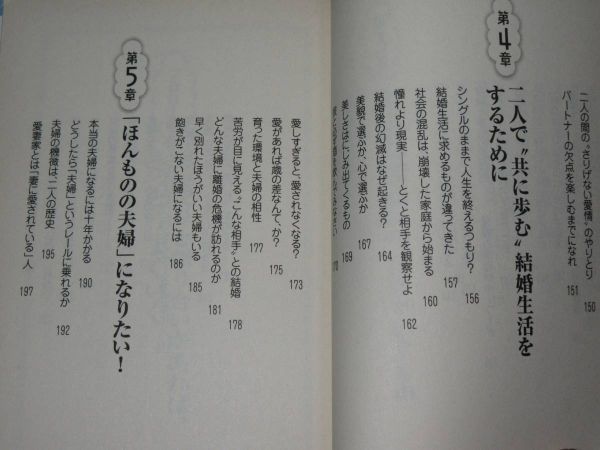 二人の間の“さりげない愛情”のやりとり 150
パートナーの欠点を楽しむまでになれ 151
第4章
二人で〝共に歩む〟結婚生活を
するために
シングルのままで人生を終えるつもり? 156
結婚生活に求めるものが違ってきた 157
社会の混乱は、崩壊した家庭から始まる 160
憧れより現実――とくと相手を観察せよ 162
結婚後の幻滅はなぜ起きる? 164
美貌で選ぶか、心で選ぶか 167
美しさはにじみ出てくるもの 169
170
愛しすぎると、愛されなくなる? 173
愛があれば歳の差なんて、か? 175
育った環境と夫婦の相性 177
苦労が目に見える〝こんな相手〟との結婚 178
どんな夫婦に離婚の危機が訪れるのか 181
早く別れたほうがいい夫婦もいる 185
飽きがこない夫婦になるには 186
第5章
「ほんものの夫婦」になりたい!
本当の夫婦になるには十年かかる 190
どうしたら「夫婦」というレールに乗れるか 192
夫婦の機微は、二人の歴史 195
愛妻家とは「妻に愛されている」人 197